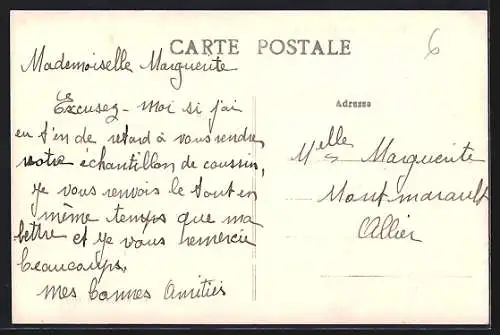 CARTE POSTALE
6
Mademoiselle Marguerite
Excusez-moi si j'ai
eu t'en de retard à vous rendre
votre échantillon de coussin,
je vous renvois le tout en
même temps que ma
lettre et je vous remercie
beaucoups.
mes bonnes Amitiés
Adresse
Melle Marguerite
Montmarault
Allier